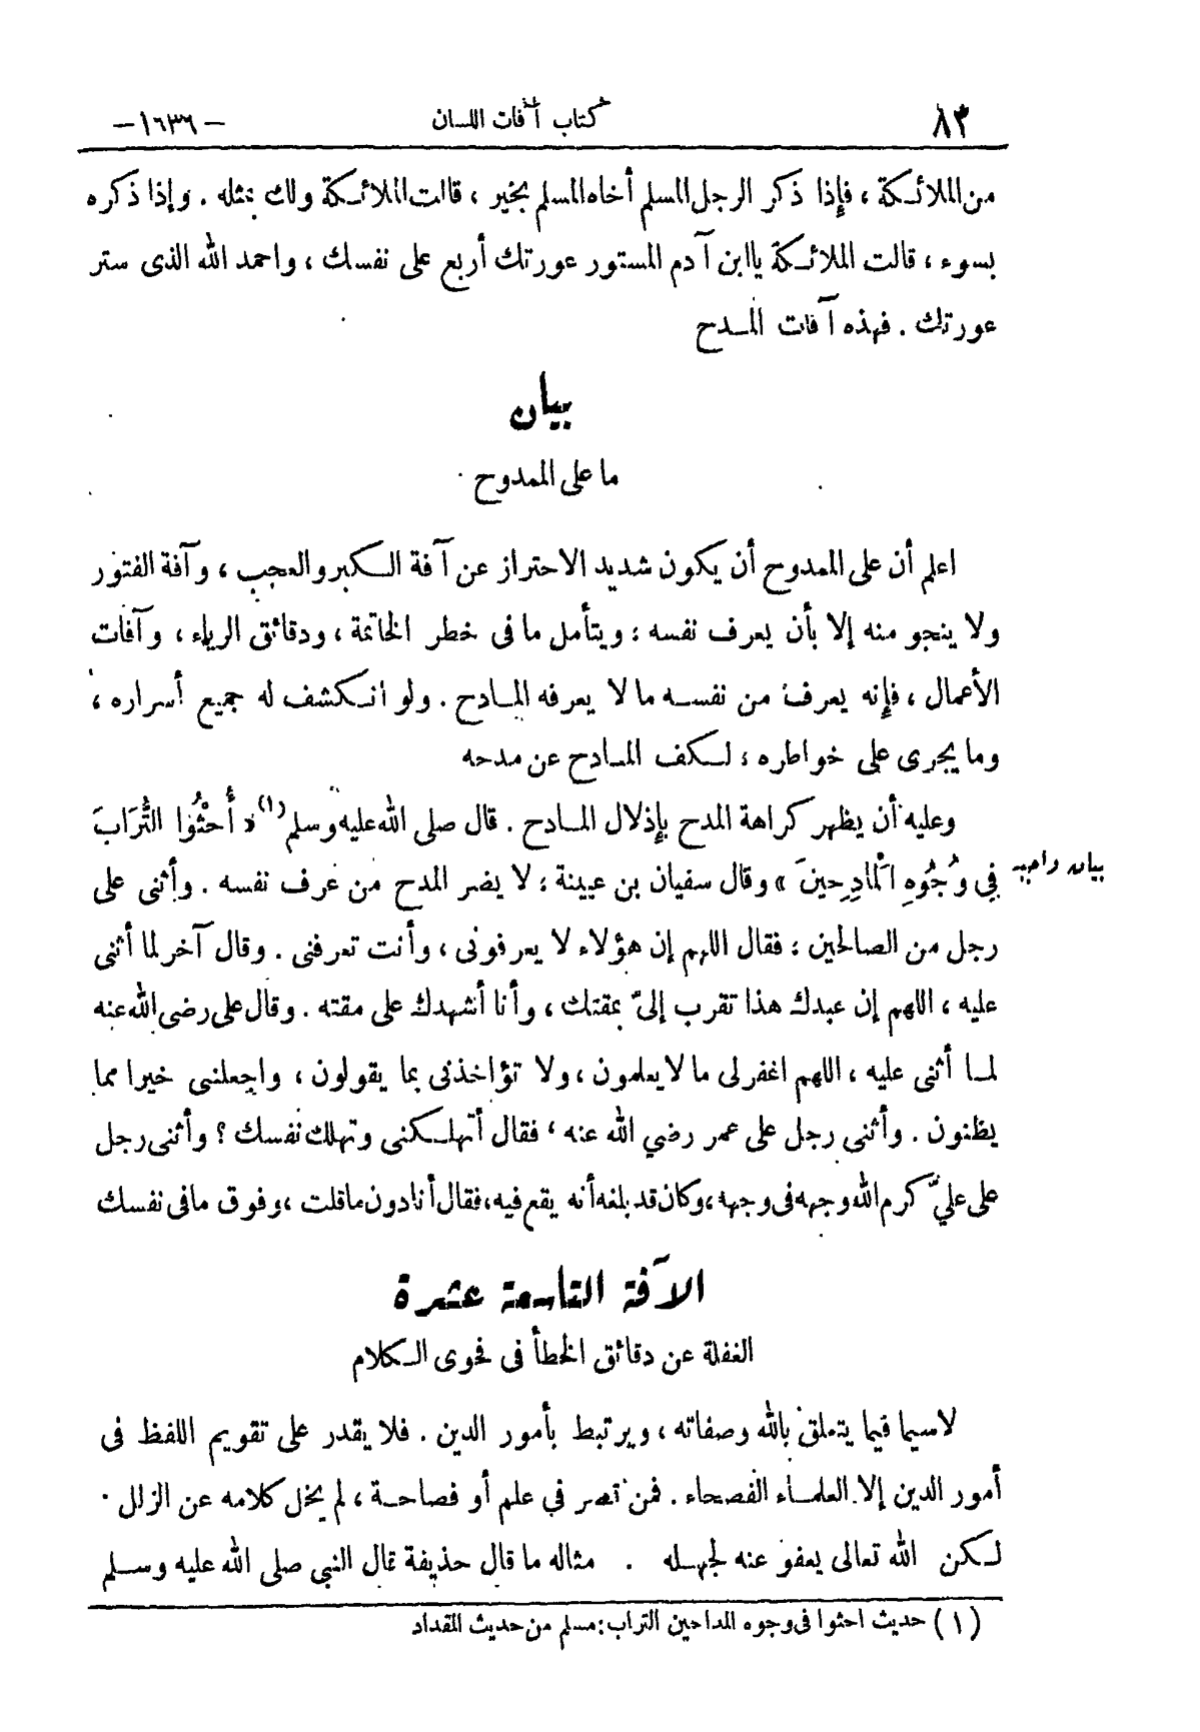 ٨٣ كتاب آفات اللسان -١٦٣٦-
من الملائكة ، فإذا ذكر الرجل المسلم أخاه المسلم بخير ، قالت الملائكة ولك بمثله . وإذا ذكره
بسوء ، قالت الملائكة ياابن آدم المستور عورتك أربع على نفسك ، واحمد الله الذى ستر
عورتك . فهذه آفات المدح
بيان
ما على الممدوح
اعلم أن على الممدوح أن يكون شديد الاحتراز عن آفة الكبر والعجب ، وآفة الفتور
ولا ينجو منه إلا بأن يعرف نفسه ؛ ويتأمل ما فى خطر الخاتمة ، ودقائق الرياء ، وآفات
الأعمال ، فإنه يعرف من نفسه ما لا يعرفه المادح . ولو انكشف له جميع أسراره ،
وما يجرى على خواطره ، لكف المادح عن مدحه
وعليه أن يظهر كراهة المدح بإذلال المادح . قال صلى الله عليه وسلم (١) « أُحْثُوا التُّرَابَ
فِي وُجُوهِ الْمَادِحِينَ » وقال سفيان بن عيينة ؛ لا يضر المدح من عرف نفسه . وأثنى على
بيان واجب
رجل من الصالحين ؛ فقال اللهم إن هؤلاء لا يعرفونى ، وأنت تعرفنى . وقال آخر لما أثنى
عليه ، اللهم إن عبدك هذا تقرب إلىّ بمقتك ، وأنا أشهدك على مقته . وقال على رضى الله عنه
لما أثنى عليه ، اللهم اغفر لى ما لا يعلمون ، ولا تؤاخذنى بما يقولون ، واجعلنى خيرا مما
يظنون . وأثنى رجل على عمر رضي الله عنه ، فقال أتهلكنى وتهلك نفسك ؟ وأثنى رجل
على عليّ كرم الله وجهه فى وجهه ، وكان قد بلغه أنه يقع فيه ، فقال أنا دون ما قلت ، وفوق ما فى نفسك
الآفة التاسعة عشرة
الغفلة عن دقائق الخطأ فى فحوى الكلام
لاسيما فيما يتعلق بالله وصفاته ، ويرتبط بأمور الدين . فلا يقدر على تقويم اللفظ فى
أمور الدين إلا العلماء الفصحاء . فمن قصر في علم أو فصاحة ، لم يخل كلامه عن الزلل .
لكن الله تعالى يعفو عنه لجهله . مثاله ما قال حذيفة قال النبي صلى الله عليه وسلم
(١) حديث احثوا فى وجوه المداحين التراب : مسلم من حديث المقداد